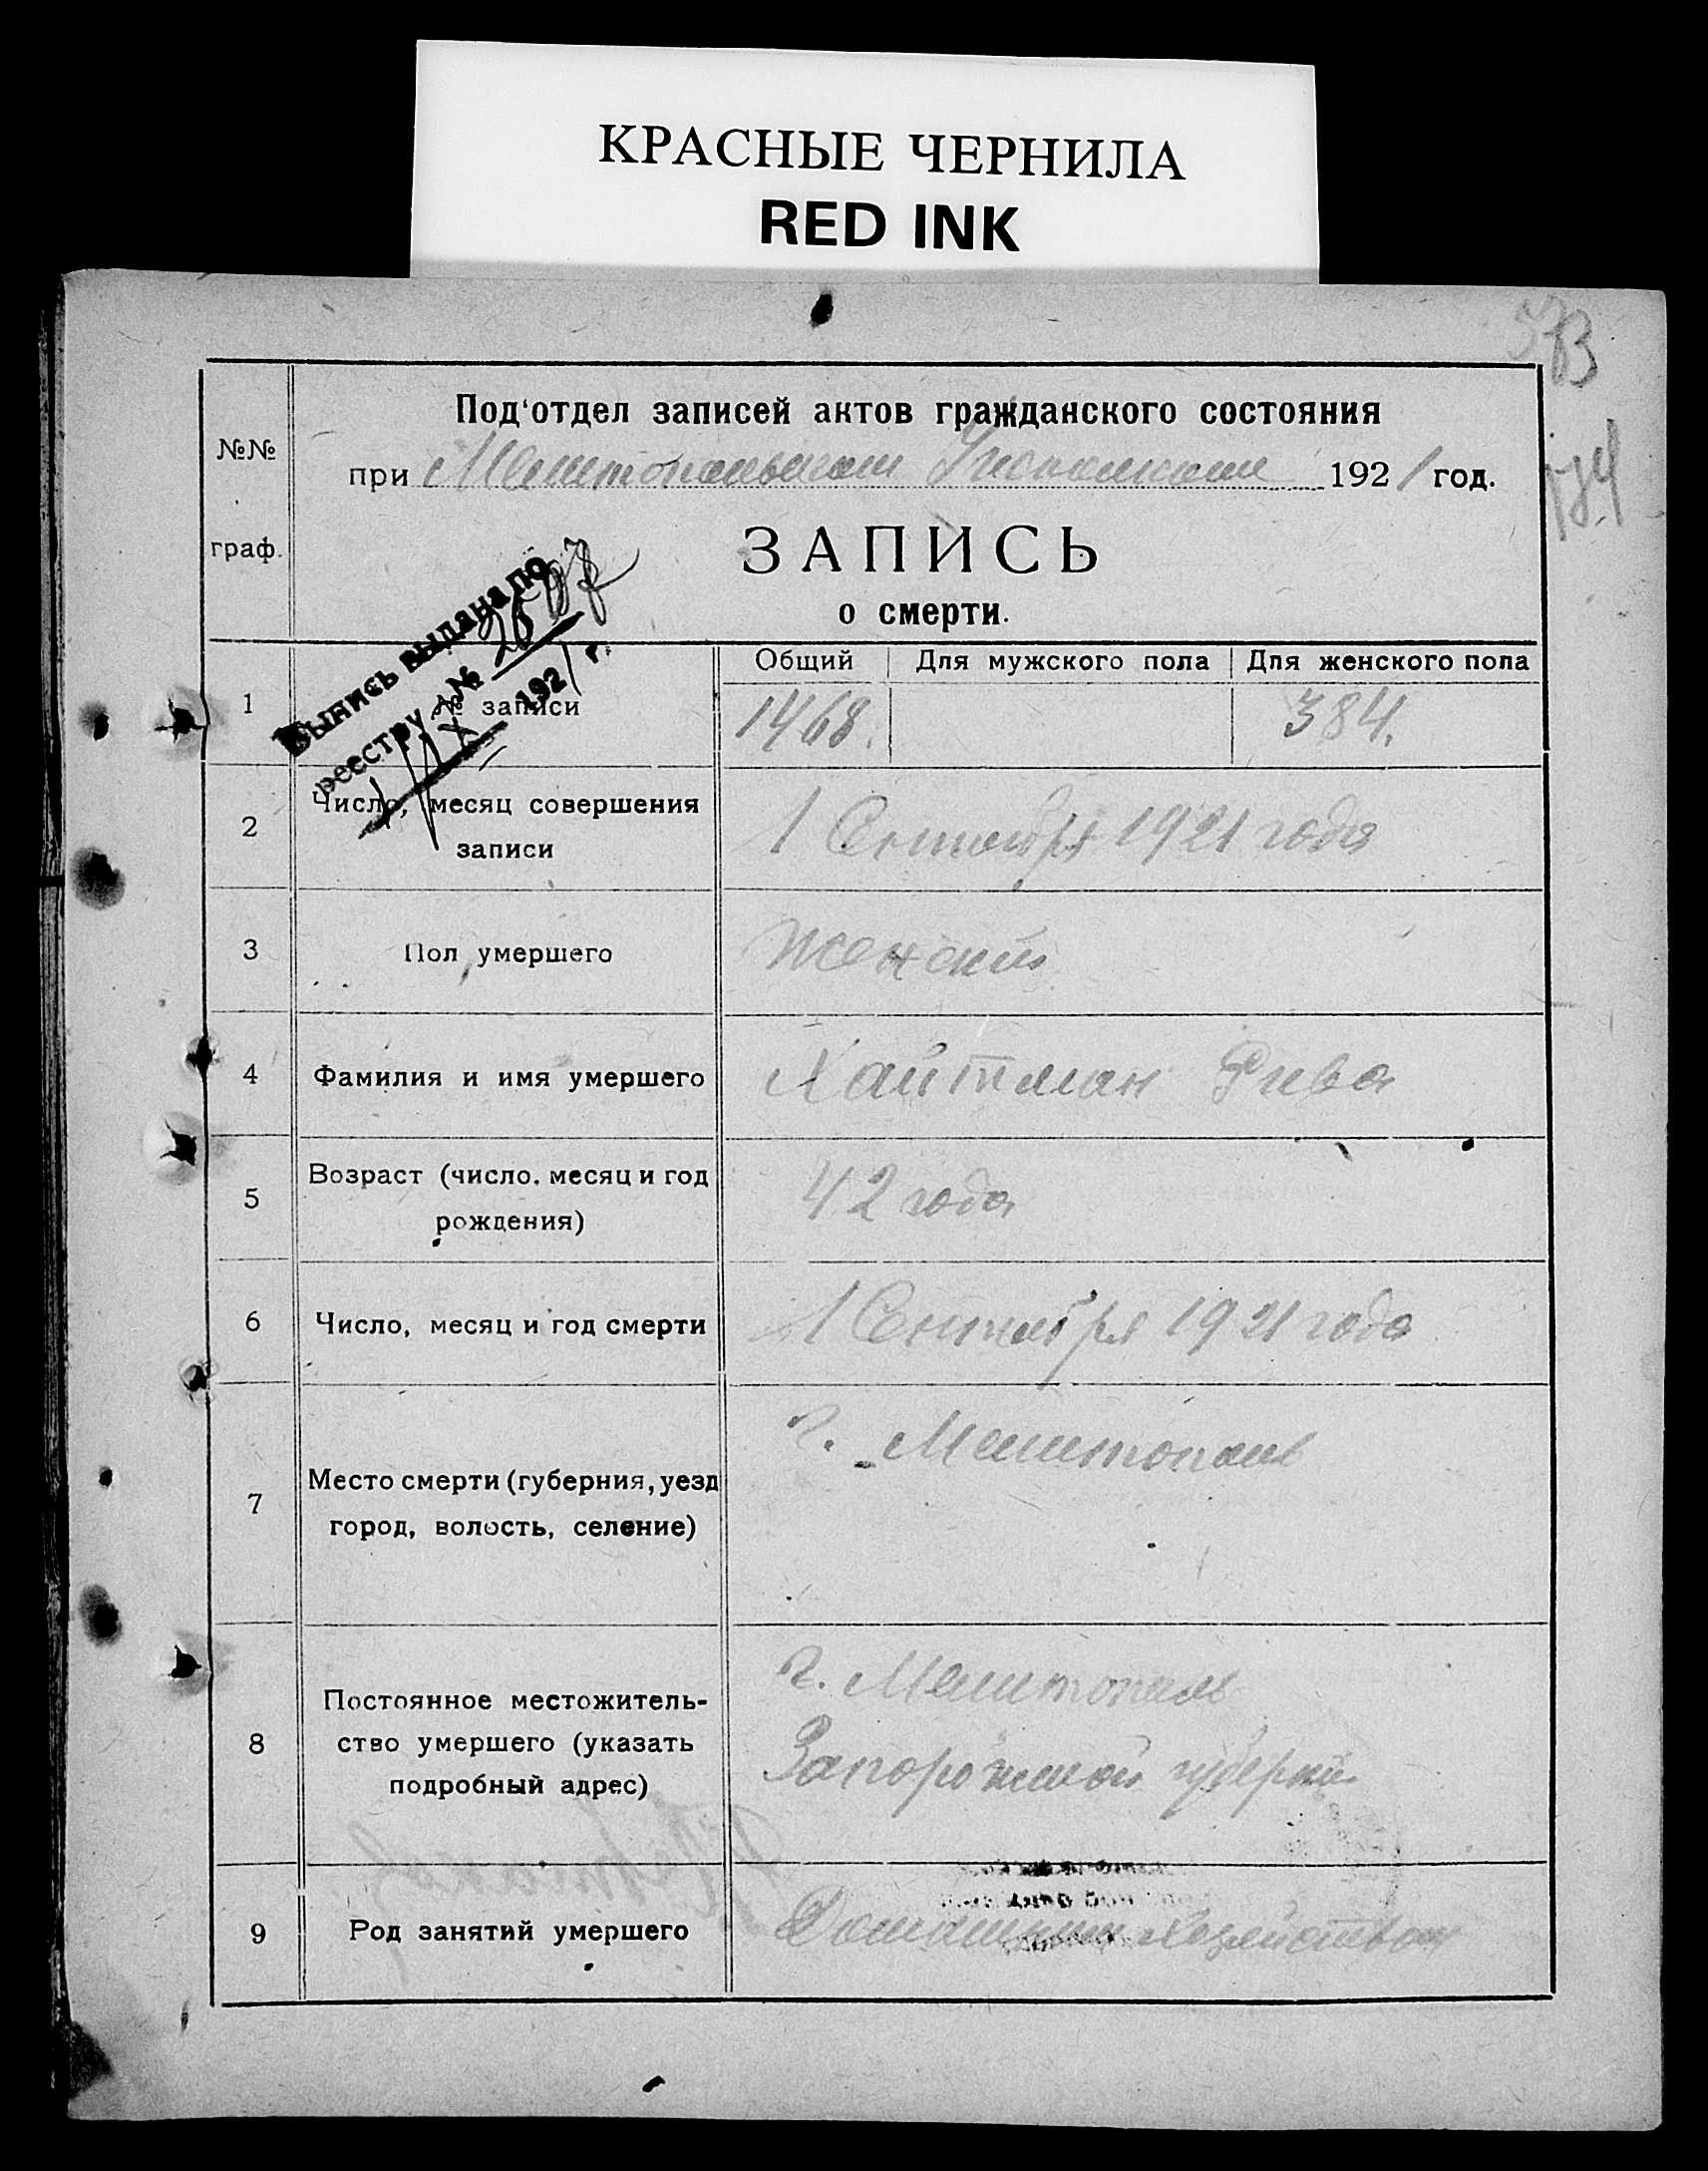 КРАСНЫЕ ЧЕРНИЛА
RED INK
Под‘отдел записей актов гражданского состояния
№№
граф.
при Мелитопольском Уисполкоме 1921 год.
ЗАПИСЬ
о смерти.
Выпись выдана по
реестру №
1/IX 1921 г.
Общий Для мужского пола Для женского пола
1 № записи 1468. 384.
2 Число, месяц совершения
записи
1 Сентября 1921 года
3 Пол умершего Женский
4 Фамилия и имя умершего Хайтман Рива
5 Возраст (число, месяц и год
рождения)
42 года
6 Число, месяц и год смерти 1 Сентября 1921 года
7 Место смерти (губерния, уезд
город, волость, селение)
г. Мелитополь
8 Постоянное местожитель-
ство умершего (указать
подробный адрес)
г. Мелитополь
Запорожской губернии
9 Род занятий умершего Домашним хозяйством